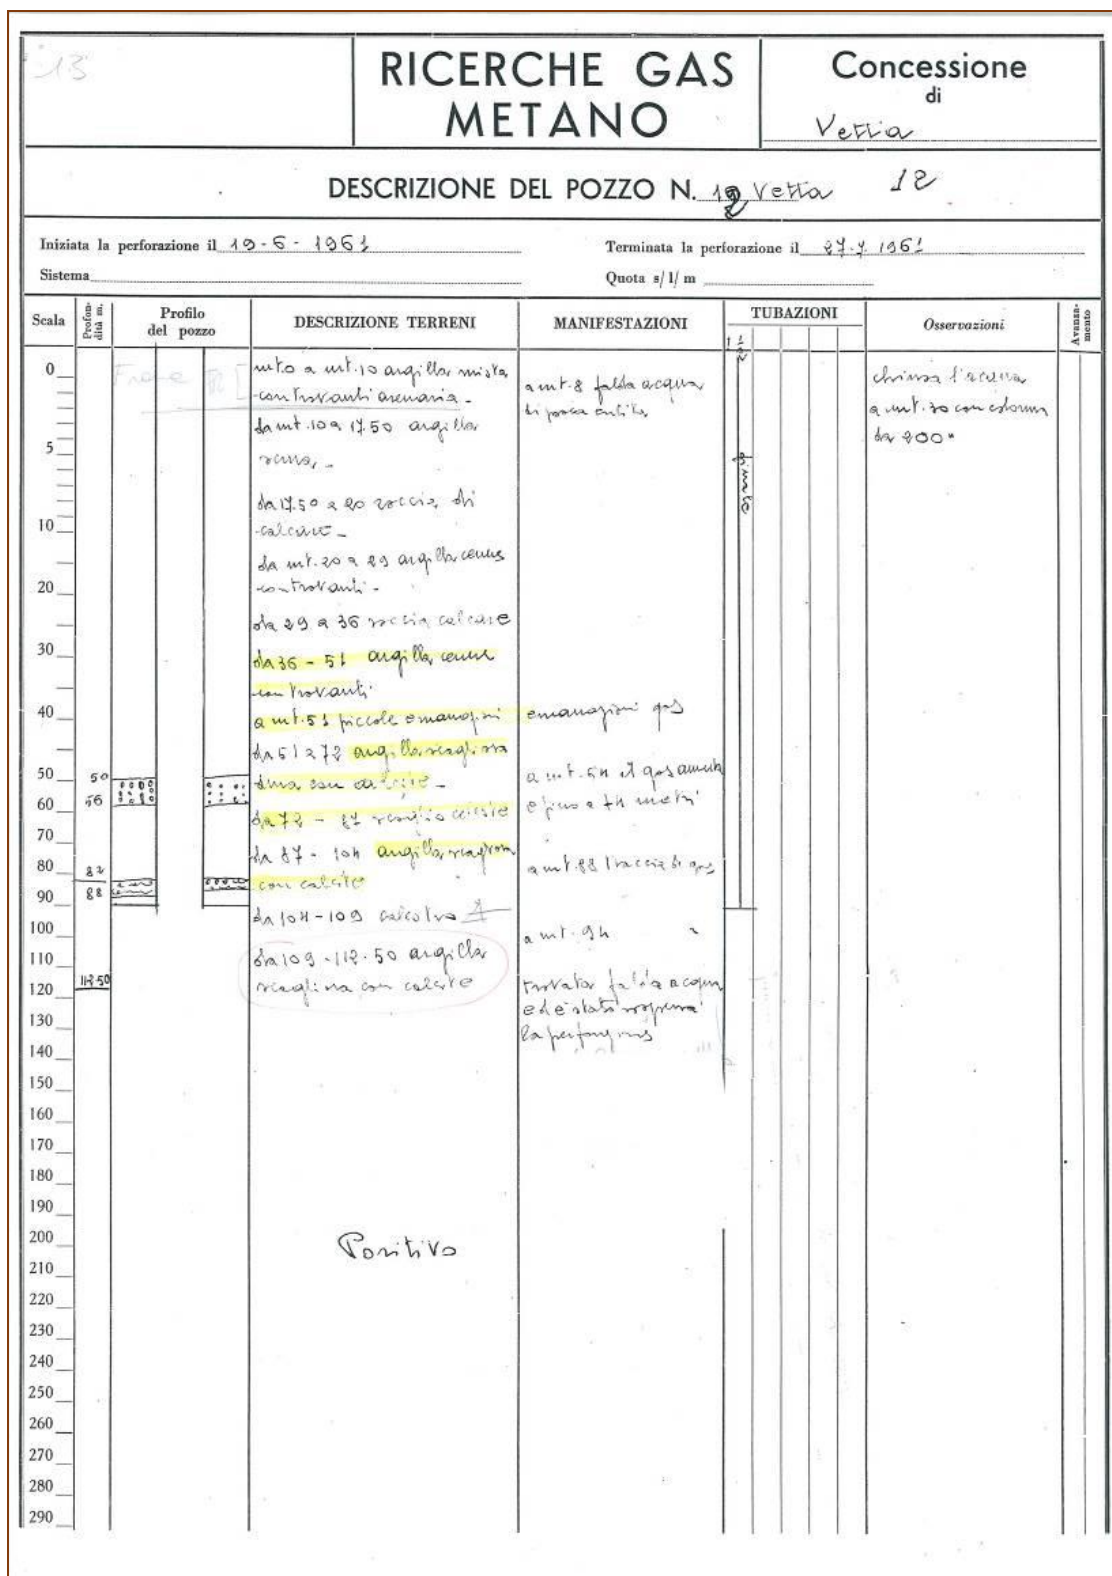 13
RICERCHE GAS
METANO
Concessione
di
Vetta
DESCRIZIONE DEL POZZO N. 12 Vetta 12
Iniziata la perforazione il 19-6-1961
Terminata la perforazione il 27.7.1961
Sistema
Quota s/l/m
Scala
Profondità m.
Profilo
del pozzo
DESCRIZIONE TERRENI
MANIFESTAZIONI
TUBAZIONI
Osservazioni
Avanzamento
0
5
10
20
30
40
50
60
70
80
90
100
110
120
130
140
150
160
170
180
190
200
210
220
230
240
250
260
270
280
290
50
56
82
88
112.50
Frana
mt.0 a mt.10 argilla mista
con trovanti arenaria.
da mt.10 a 17.50 argilla
da 17.50 a 20 roccia di
calcare
da mt.20 a 29 argilla cenere
con trovanti.
da 29 a 36 roccia calcare
da 36 - 51 argilla cenere
con trovanti
a mt.51 piccole emanazioni
da 51 a 72 argilla scagliosa
dura con calcite
da 72 - 87 celeste
da 87 - 104 argilla scagliosa
con calcite
da 104-109
da 109-112.50 argilla
scagliosa con calcite
Positivo
a mt.8 falda acqua
di poca entità
emanazioni gas
a mt.54 il gas aumenta
e fino a 74 metri
a mt.88 traccia di gas
a mt.94 "
trovata falda acqua
ed è stata sospesa
la perforazione
filmato
chiusa l'acqua
a mt.30 con colonna
da 200"